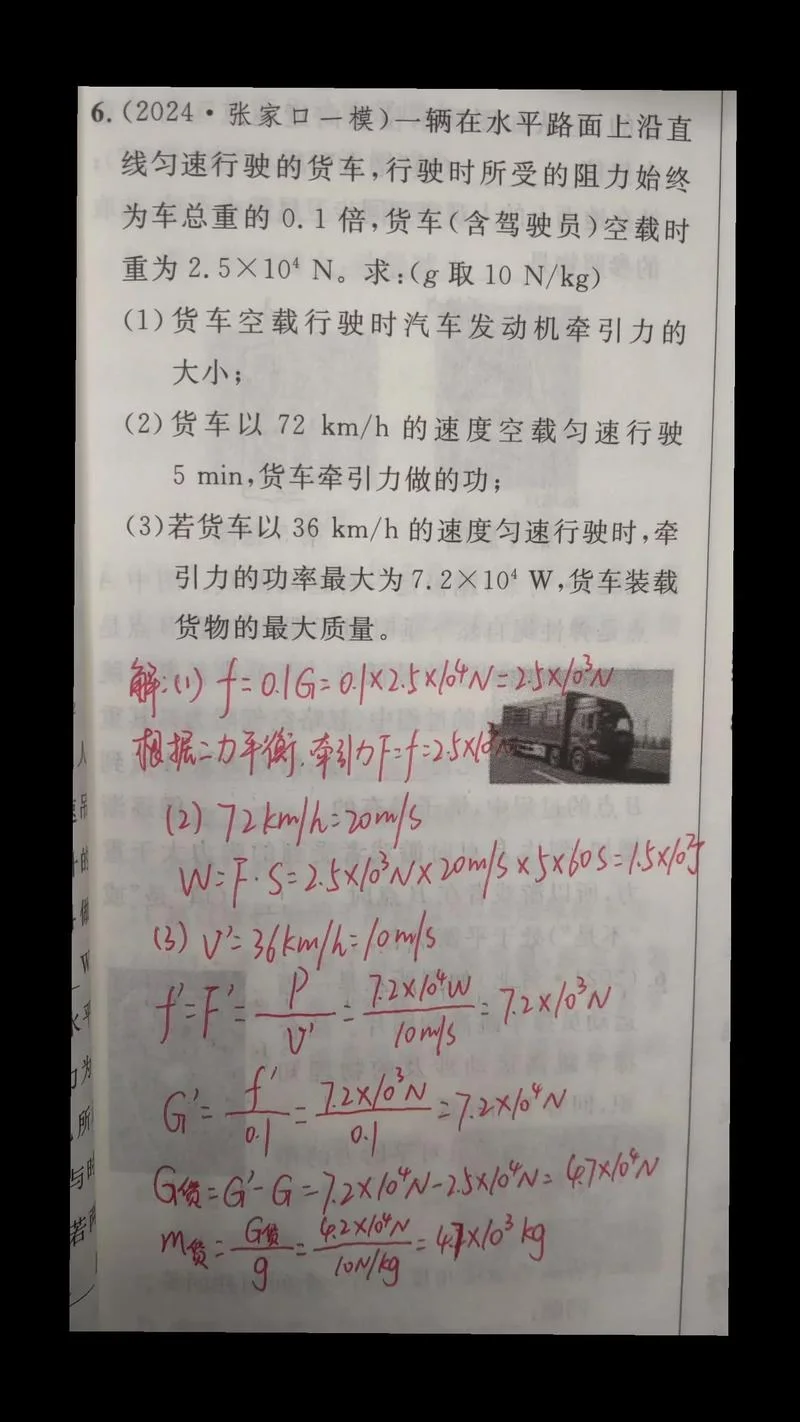 6.(2024·张家口一模)一辆在水平路面上沿直
线匀速行驶的货车,行驶时所受的阻力始终
为车总重的 0.1 倍,货车(含驾驶员)空载时
重为 2.5×10⁴ N。求:(g 取 10 N/kg)
(1)货车空载行驶时汽车发动机牵引力的
大小;
(2)货车以 72 km/h 的速度空载匀速行驶
5 min,货车牵引力做的功;
(3)若货车以 36 km/h 的速度匀速行驶时,牵
引力的功率最大为 7.2×10⁴ W,货车装载
货物的最大质量。
解:(1) f=0.1G=0.1×2.5×10⁴N=2.5×10³N
根据二力平衡,牵引力F=f=2.5×10³N
(2) 72km/h=20m/s
W=F·S=2.5×10³N×20m/s×5×60s=1.5×10⁷J
(3) v'=36km/h=10m/s
f'=F'=P/v'=7.2×10⁴W/10m/s=7.2×10³N
G'=f'/0.1=7.2×10³N/0.1=7.2×10⁴N
G货=G'-G=7.2×10⁴N-2.5×10⁴N=4.7×10⁴N
m货=G货/g=4.2×10⁴N/10N/kg=4.7×10³kg
人
的
做
W
水平
力为
所
与
若